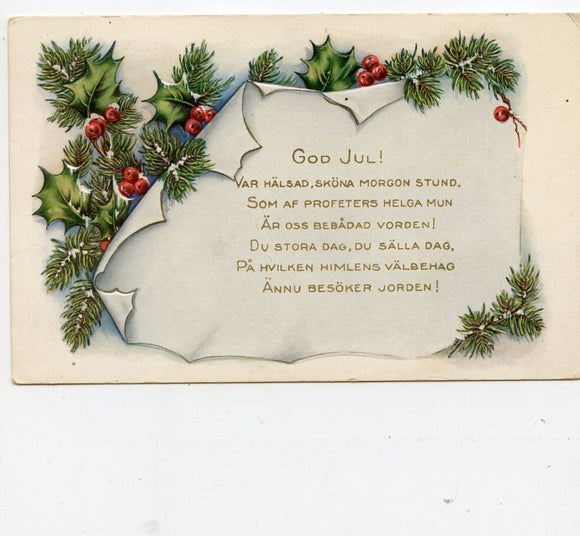 GOD JUL!
VAR HÄLSAD, SKÖNA MORGON STUND,
SOM AF PROFETERS HELGA MUN
ÄR OSS BEBÅDAD VORDEN!
DU STORA DAG, DU SÄLLA DAG,
PÅ HVILKEN HIMLENS VÄLBEHAG
ÄNNU BESÖKER JORDEN!